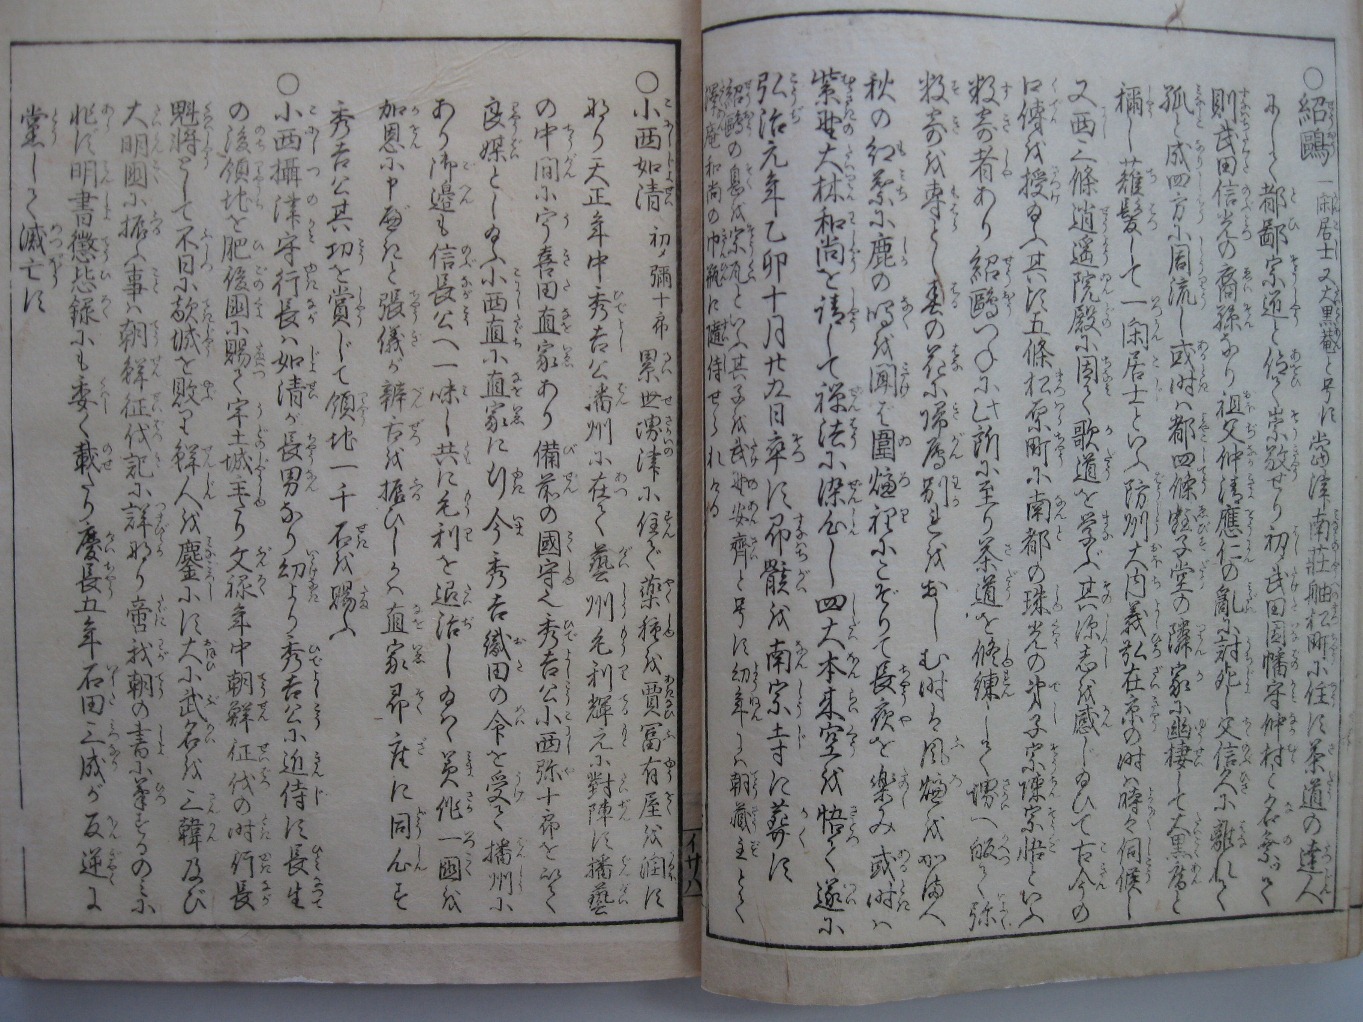 ○紹鷗 一閑居士又大黒菴と号す 當津南荘舳松町に住す茶道の達人
にして都鄙宗匠と仰ぎ崇敬せり初め武田因幡守仲村と名乗りて
則武田信光の裔孫なり祖父仲清應仁の亂に討死し父信久に離れて
孤と成四方に周流し或時は都四條戎子堂の隣家に幽棲して大黒庵と
稱し薙髪して一閑居士といふ防州大内義弘在京の時は時々伺候し
又西三條逍遥院殿に因て歌道を学ぶ其深志を感じ給ひて古今の
口傳を授給ふ其比五條松原町に南都の珠光の弟子宗陳宗悟といふ
数寄者あり紹鷗つねに此所に至り茶道を修練して堺へ皈て弥
数寄を専とし春の花に帰雁別れをおしむ時は風爐を加へ人
秋の紅葉に鹿の鳴を聞ば圍爐裡にこぞりて長夜を楽み或時は
紫野大林和尚を請して禅法に染心し四大本来空を悟て遂に
弘治元年乙卯十月廿九日卒す即骸を南宗寺に葬す
紹鷗の息を宗瓦といふ其子を武野安齋と号す幼年には朝蔵主とて
澤庵和尚の巾瓶に随侍せられける
○小西如清 初ノ彌十郎 累世堺津に住て薬種を賈富有屋を潤す
なり天正年中秀吉公播州に在て藝州毛利輝元に對陣す播藝
の中間に宇喜田直家あり備前の國守也秀吉公小西弥十郎を以て
良媒とし給ふ小西直に直家に行今秀吉織田の令を受て播州に
あり御邊も信長公へ一味し共に毛利を追治し給はゞ美作一國を
加恩に申べきと張儀が辨舌を振ひしかば直家昂座に同心す
秀吉公其功を賞じて領地一千石を賜ふ
○小西攝津守行長は如清が長男なり幼より秀吉公に近侍す長生
の後領地を肥後國に賜て宇土城主たり文禄年中朝鮮征伐の時行長
魁将として不日に敵城を敗り鮮人を鏖にす大に武名を三韓及び
大明國に振ふ事は朝鮮征伐記に詳なり啻我朝の書に筆するのみに
非ず明書懲毖録にも委く載たり慶長五年石田三成が反逆に
黨して滅亡す
イ廿八